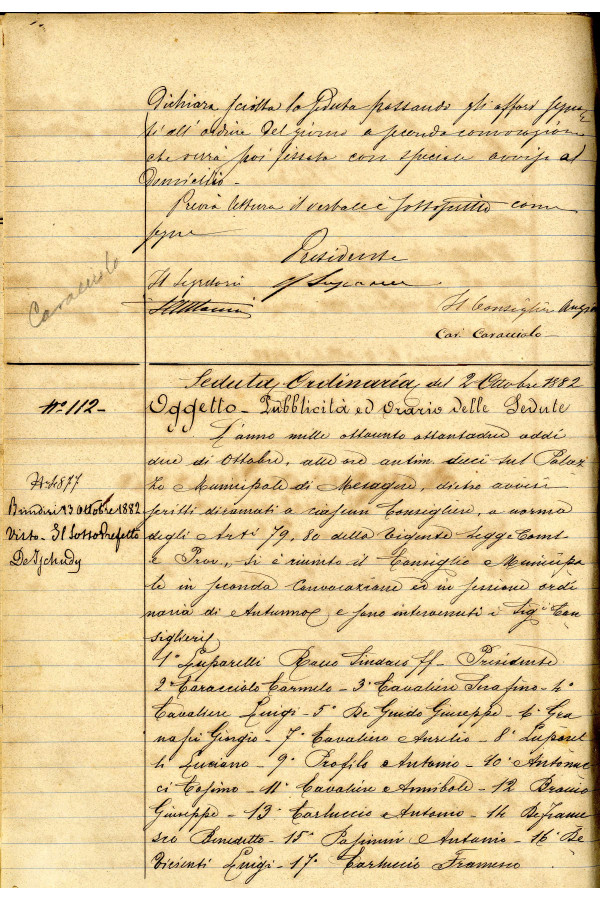 Dichiara sciolta la seduta passando gli affari segnati all'ordine del giorno a seconda convocazione
che verrà poi fissata con speciale avviso al
domicilio.
Previa lettura il verbale è sottoscritto come
segue
Presidente
Il Segretario
Il Consigliere Anziano
Car. Caracciolo
Caracciolo
Seduta Ordinaria del 2 Ottobre 1882
N° 112 -
Oggetto - Pubblicità ed Orario delle Sedute
L'anno mille ottocento ottantadue addì
due di Ottobre, alle ore antim. dieci sul Palaz
zo Municipale di Mesagne, dietro avvisi
scritti diramati a ciascun Consigliere, a norma
degli Arti 79, 80 della vigente Legge Coml
e Prov., si è riunito il Consiglio Municipa
le in seconda convocazione ed in sessione ordi
naria di Autunno e sono intervenuti i Sigi Con
siglieri
N. 4877
Brindisi 13 Ottobre 1882
Visto - Il Sotto Prefetto
De Tschudy
1° Luparelli Rocco Sindaco ff - Presidente
2° Caracciolo Carmelo - 3° Cavaliere Serafino - 4°
Cavaliere Luigi - 5° De Guido Giuseppe - 6° Gra
nafei Giorgio - 7° Cavaliere Aurelio - 8° Luparel
li Luciano - 9° Profilo Antonio - 10° Antonuc
ci Cosimo - 11° Cavaliere Annibale - 12
Giuseppe - 13° Carluccio Antonio - 14 De France
sco Benedetto - 15° Pasimeni Antonio - 16° De
Vicienti Luigi - 17° Carluccio Francesco